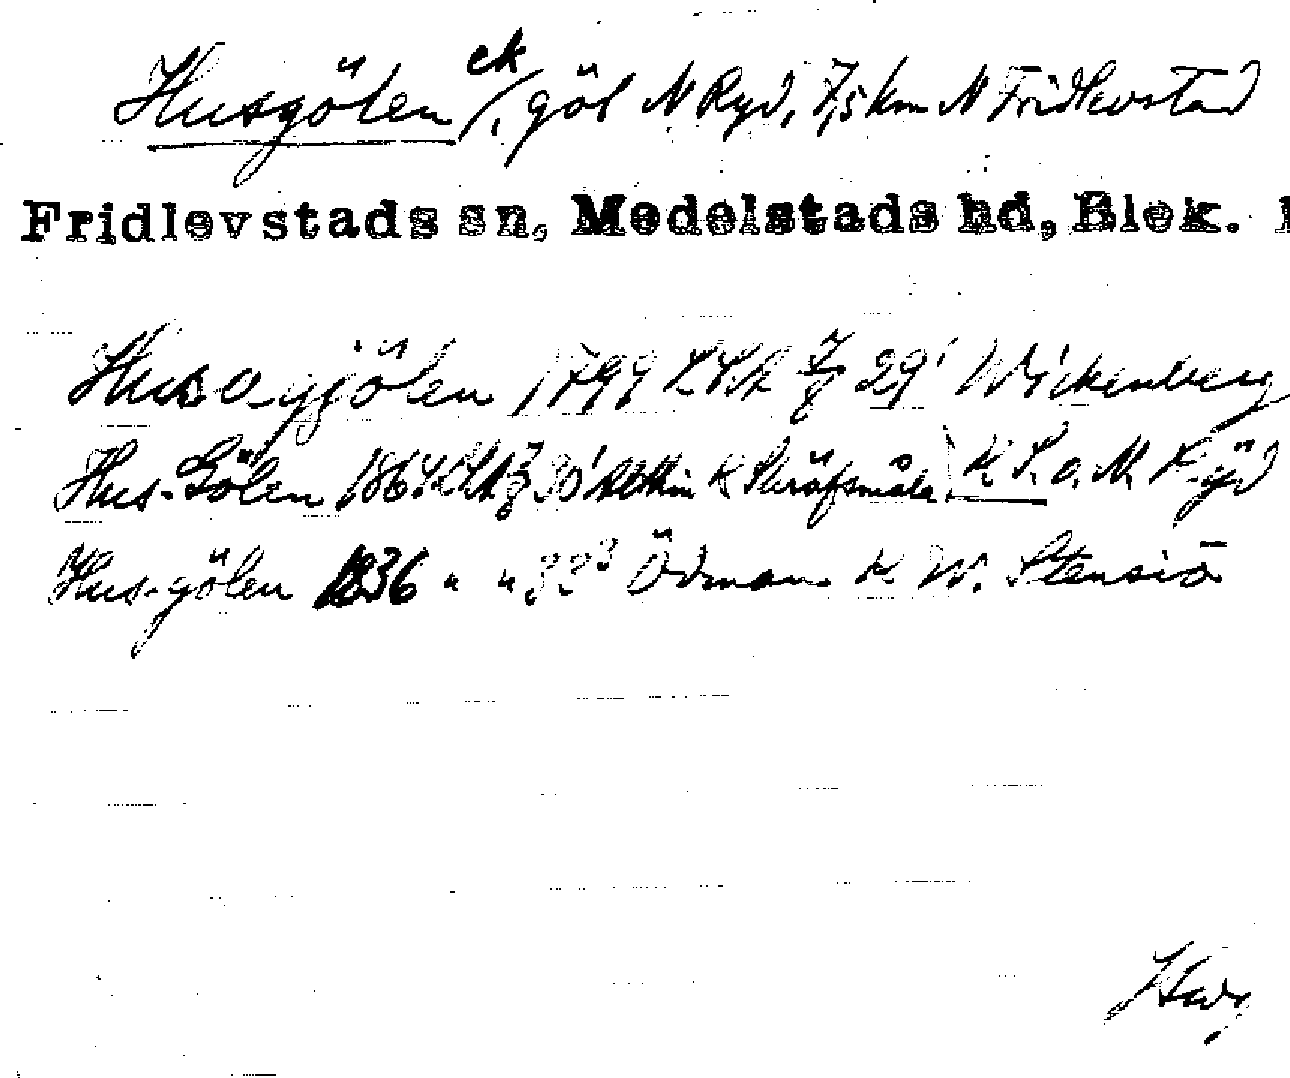 Husgölen ek/, göl N Ryd, 7,5 km N Fridlevstad
Fridlevstads sn, Medelstads hd, Blek.
Husagjölen 1799 LSA 29¹ Wickenberg
Hus-Gölen 1864 LSA 30¹ K Skräfsmåla K S. o. M Ryd
Hus-gölen 1836 " " 33³ Ödman K W. Stensiö